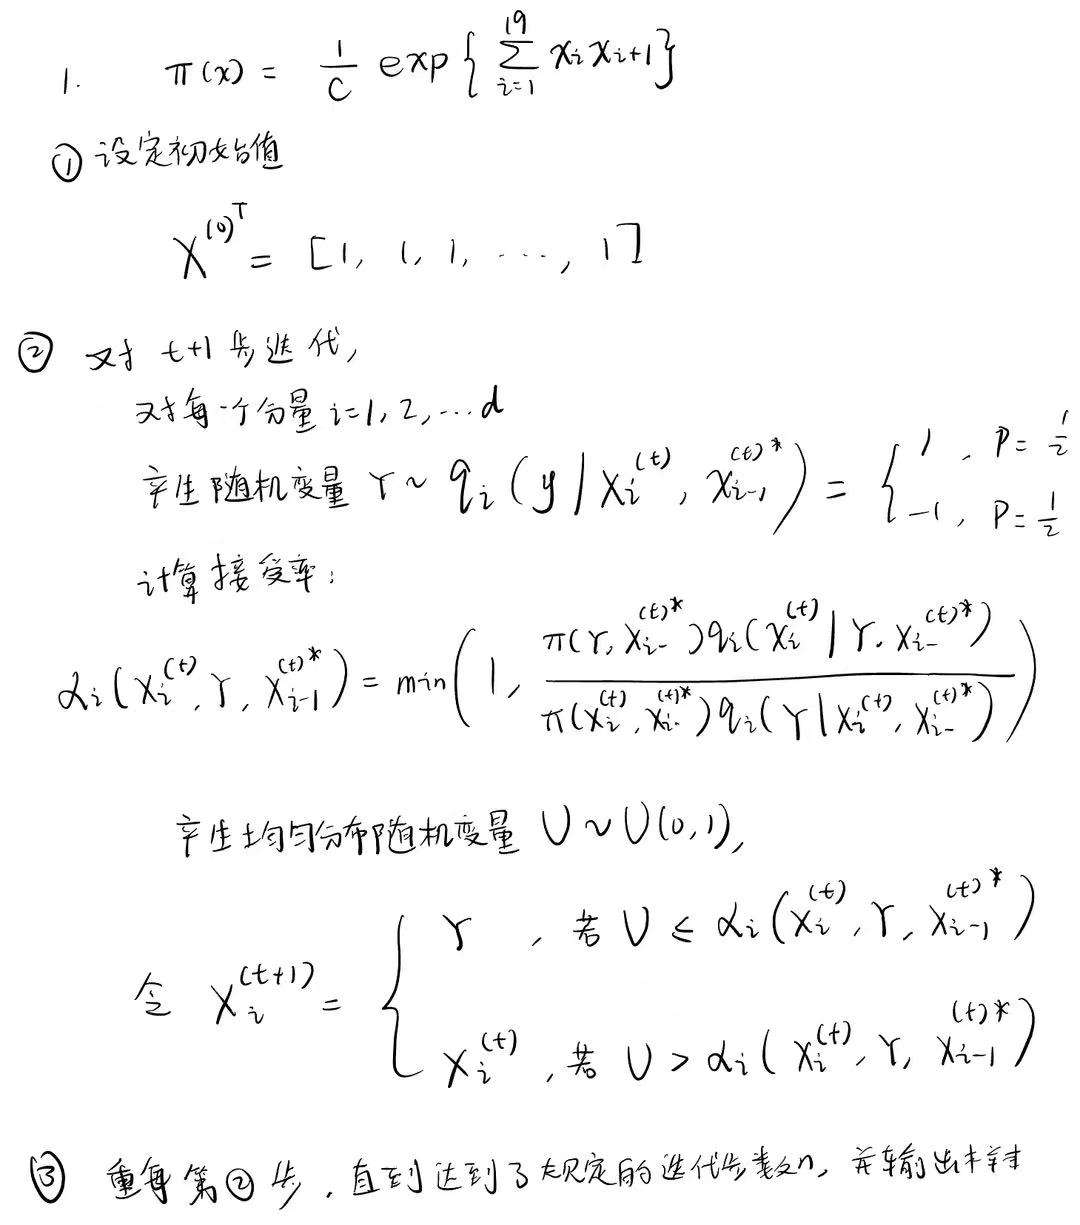 1. π(x) = 1/C exp{∑_{i=1}^{19} x_i x_{i+1}}
① 设定初始值
X^{(0)T} = [1, 1, 1, ..., 1]
② 对 t+1 步迭代,
对每一个分量 i=1, 2, ... d
产生随机变量 Y ~ q_i(y | X_i^{(t)}, X_{i-1}^{(t)*}) = { 1, P=1/2
-1, P=1/2
计算接受率:
α_i(X_i^{(t)}, Y, X_{i-1}^{(t)*}) = min(1, π(Y, X_{i-}^{(t)*}) q_i(X_i^{(t)} | Y, X_{i-}^{(t)*}) / π(X_i^{(t)}, X_{i-}^{(t)*}) q_i(Y | X_i^{(t)}, X_{i-}^{(t)*}))
产生均匀分布随机变量 U ~ U(0, 1),
令 X_i^{(t+1)} = { Y, 若 U ≤ α_i(X_i^{(t)}, Y, X_{i-1}^{(t)*})
X_i^{(t)}, 若 U > α_i(X_i^{(t)}, Y, X_{i-1}^{(t)*})
③ 重复第②步, 直到达到了规定的迭代步数n, 并输出样本